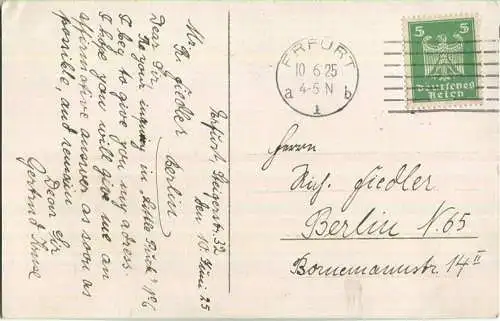 Erfurt, Steigerstr. 32
den 10. Juni 25
Mr. R. Fiedler
Berlin
Dear Sir,
Re your inquiry in "Little Puck" No 6
I beg to give you my adress.
I hope you will give me an
affirmative answer as soon as
possible, and remain
Dear Sir
Gertrud
ERFURT
10.6.25
4-5 N
a 1 b
5 5
Deutsches
Reich
Herrn
Rich. Fiedler
Berlin N.65
Bornemannstr. 14 II